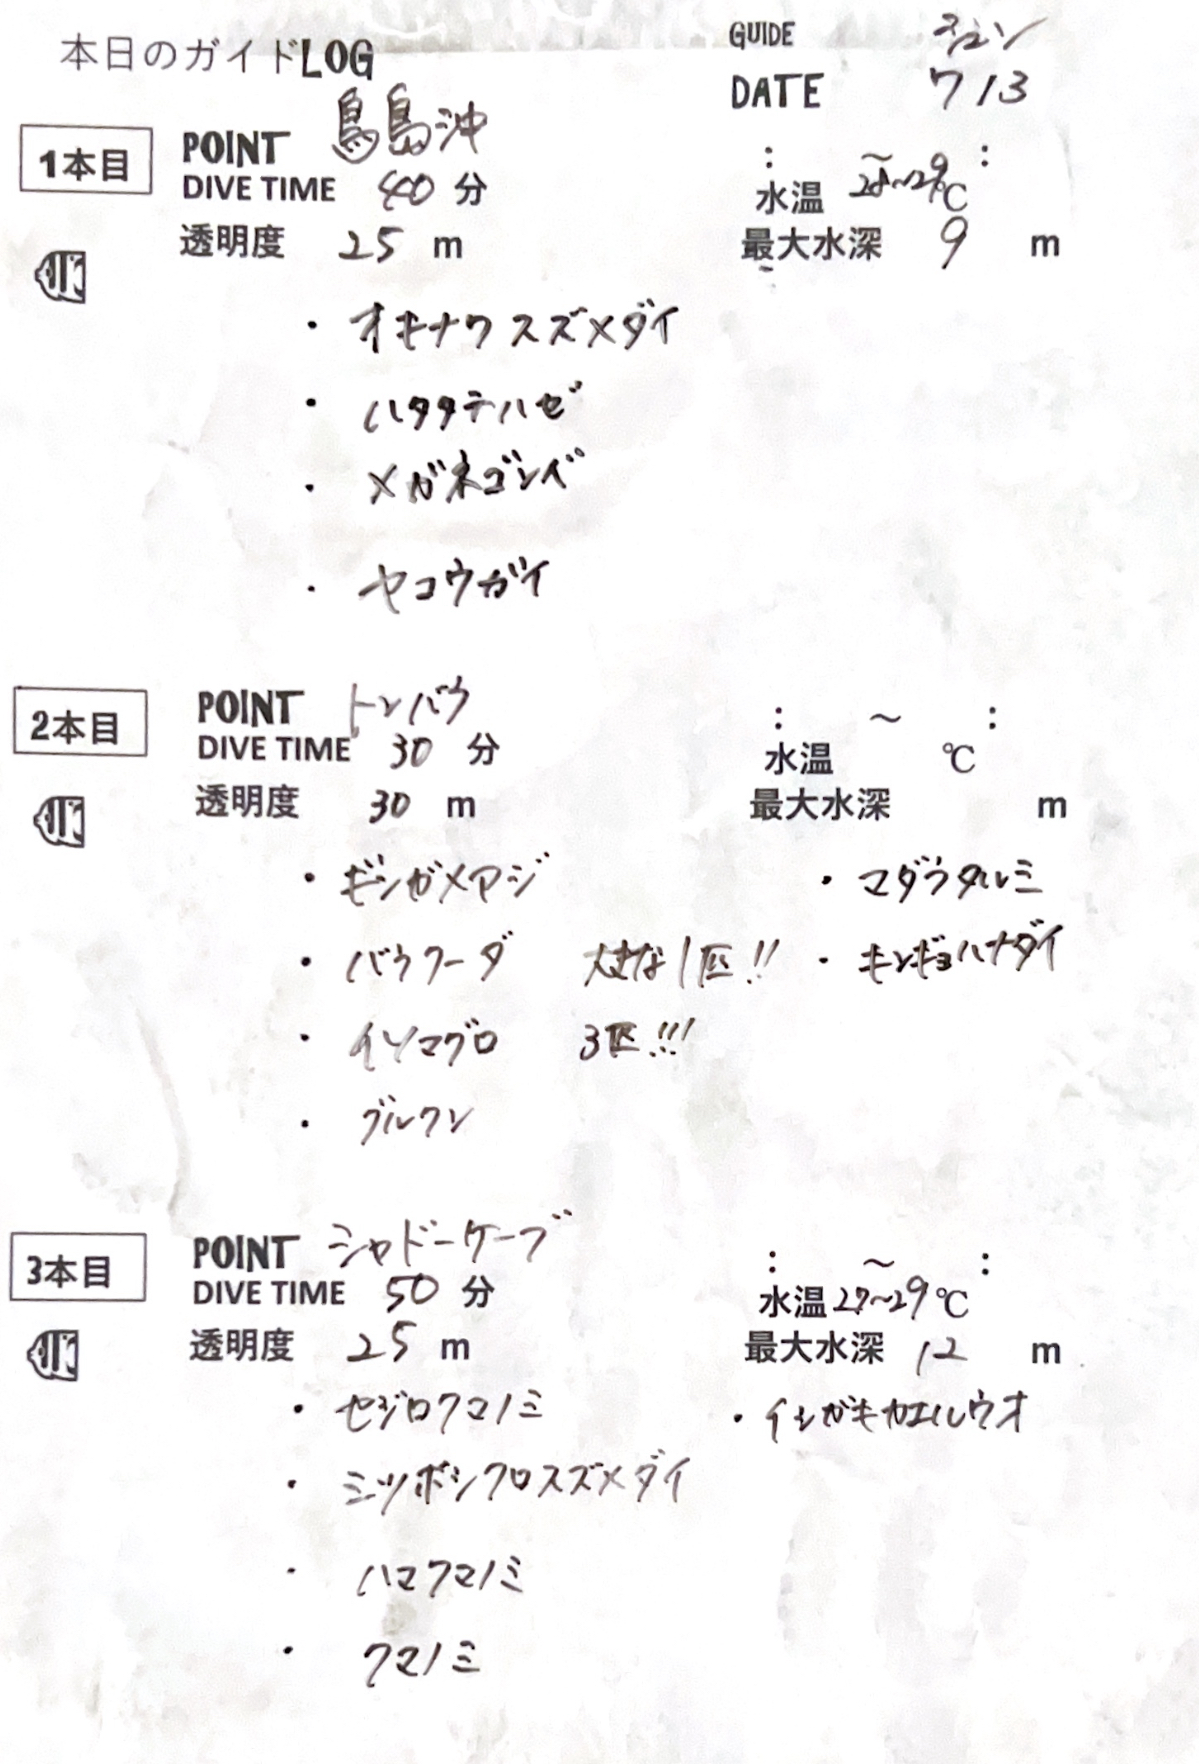 本日のガイドLOG
GUIDE ジュン
DATE 7 13
1本目
POINT 鳥島沖
: ～ :
DIVE TIME 40 分
水温 28~29℃
透明度 25 m
最大水深 9 m
・オキナワスズメダイ
・ハタタテハゼ
・メガネゴンベ
・ヤコウガイ
2本目
POINT トンバラ
: ～ :
DIVE TIME 30 分
水温 ℃
透明度 30 m
最大水深 m
・ギンガメアジ ・マダラタルミ
・バラクーダ 大きな1匹!! ・キンギョハナダイ
・イソマグロ 3匹!!!
・グルクン
3本目
POINT シャドーケーブ
: ～ :
DIVE TIME 50 分
水温 27~29℃
透明度 25 m
最大水深 12 m
・セジロクマノミ ・イシガキカエルウオ
・ミツボシクロスズメダイ
・ハマクマノミ
・クマノミ